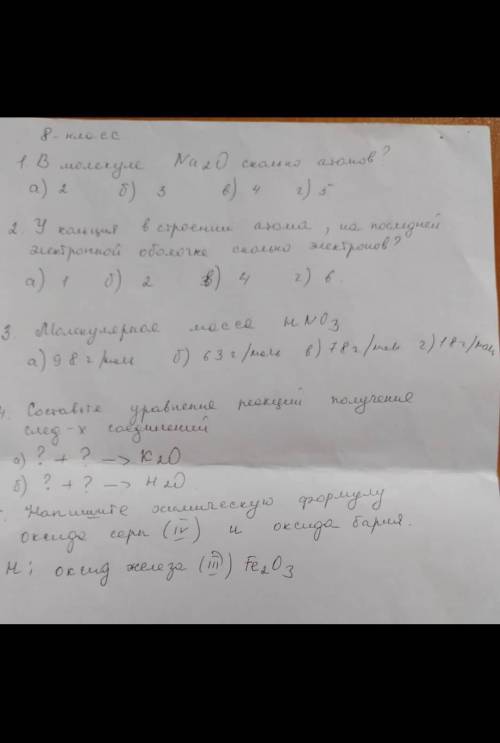 8-класс
1. В молекуле Na2O сколько атомов?
а) 2 б) 3 в) 4 г) 5
2. У кальция в строении атома, на последней
электронной оболочке сколько электронов?
а) 1 б) 2 в) 4 г) 6.
3. Молекулярная масса HNO3
а) 98 г/моль б) 63 г/моль в) 78 г/моль г) 18 г/моль
4. Составьте уравнения реакций получения
след-х соединений
а) ? + ? —> K2O
б) ? + ? —> H2O
Напишите химическую формулу
оксида серы (IV) и оксида бария.
Н: оксид железа (III) Fe2O3